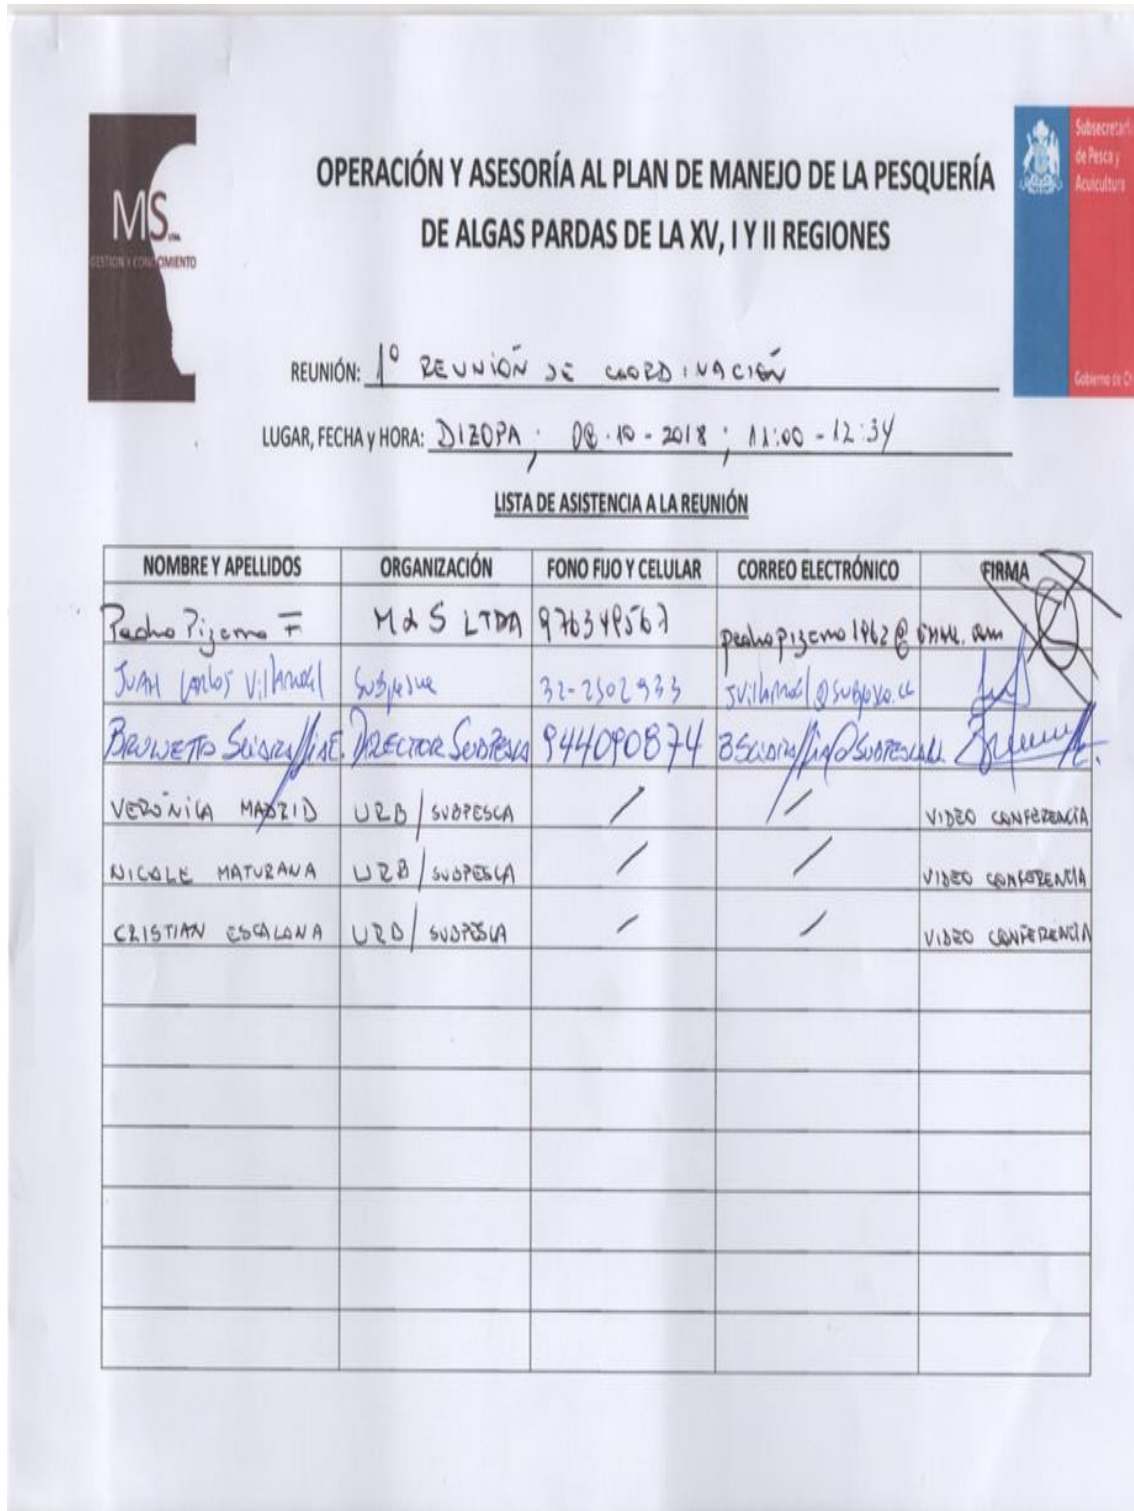 MS LTDA.
GESTIÓN Y CONOCIMIENTO
OPERACIÓN Y ASESORÍA AL PLAN DE MANEJO DE LA PESQUERÍA
DE ALGAS PARDAS DE LA XV, I Y II REGIONES
Subsecretaría
de Pesca y
Acuicultura
Gobierno de Ch
REUNIÓN: 1° REUNIÓN DE COORDINACIÓN
LUGAR, FECHA y HORA: DIZOPA; 08-10-2018; 11:00 - 12:34
LISTA DE ASISTENCIA A LA REUNIÓN
NOMBRE Y APELLIDOS ORGANIZACIÓN FONO FIJO Y CELULAR CORREO ELECTRÓNICO FIRMA
Pedro Pizarro F M&S LTDA 976349567
Juan Carlos Villarroel Subpesca 32-2502933
DIRECTOR SUBPESCA 944090874
VERÓNICA MADRID URB/SUBPESCA / / VIDEO CONFERENCIA
NICOLE MATURANA URB/SUBPESCA / / VIDEO CONFERENCIA
CRISTIAN ESCALONA URB/SUBPESCA / / VIDEO CONFERENCIA